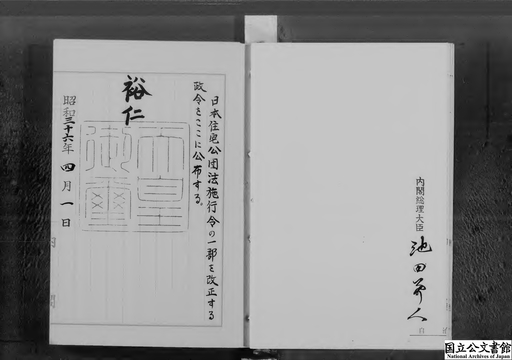 日本住宅公団法施行令の一部を改正する
政令をここに公布する。
裕仁
天皇御璽
昭和三十六年四月一日
内閣総理大臣 池田勇人
国立公文書館
National Archives of Japan